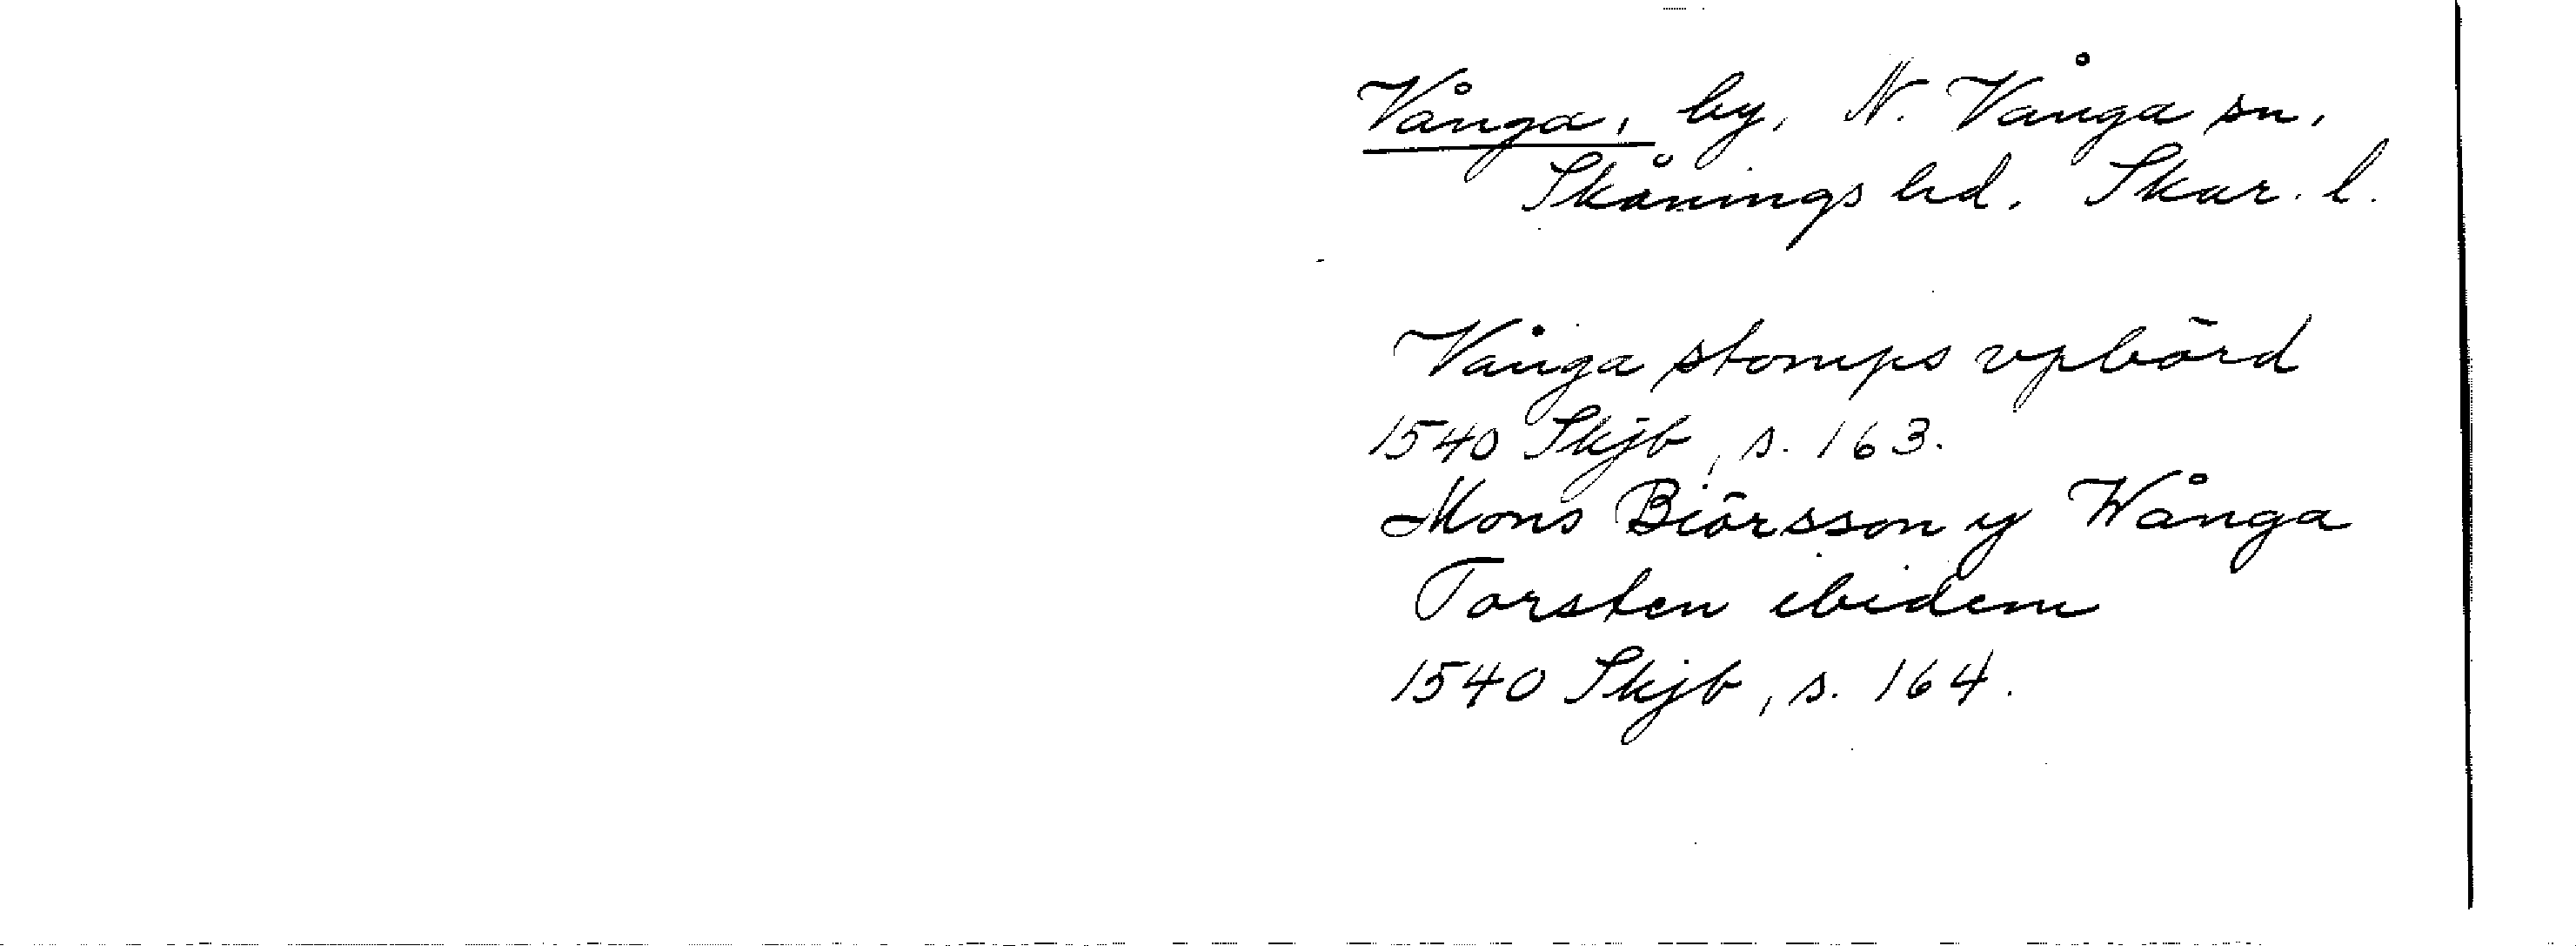 Vånga, by, N. Vånga sn.
Skånings hd. Skar. l.
Vånga stomps vpbörd
1540 Skjb, s. 163.
Mons Biörsson y Wånga
Torsten ibidem
1540 Skjb, s. 164.